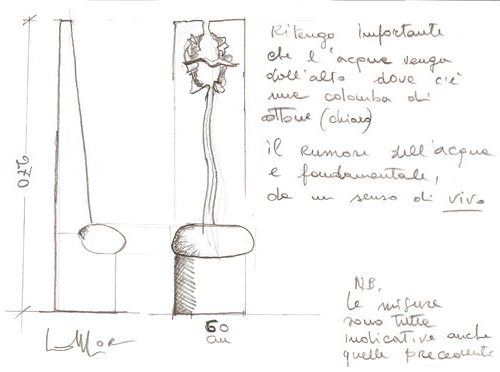 Ritengo importante
che l'acqua venga
dall'alto dove c'è
una colomba di
ottone (chiaro)
il rumore dell'acqua
è fondamentale,
da un senso di vivo
270
60
cm
N.B.
Le misure
sono tutte
indicative anche
quelle precedente